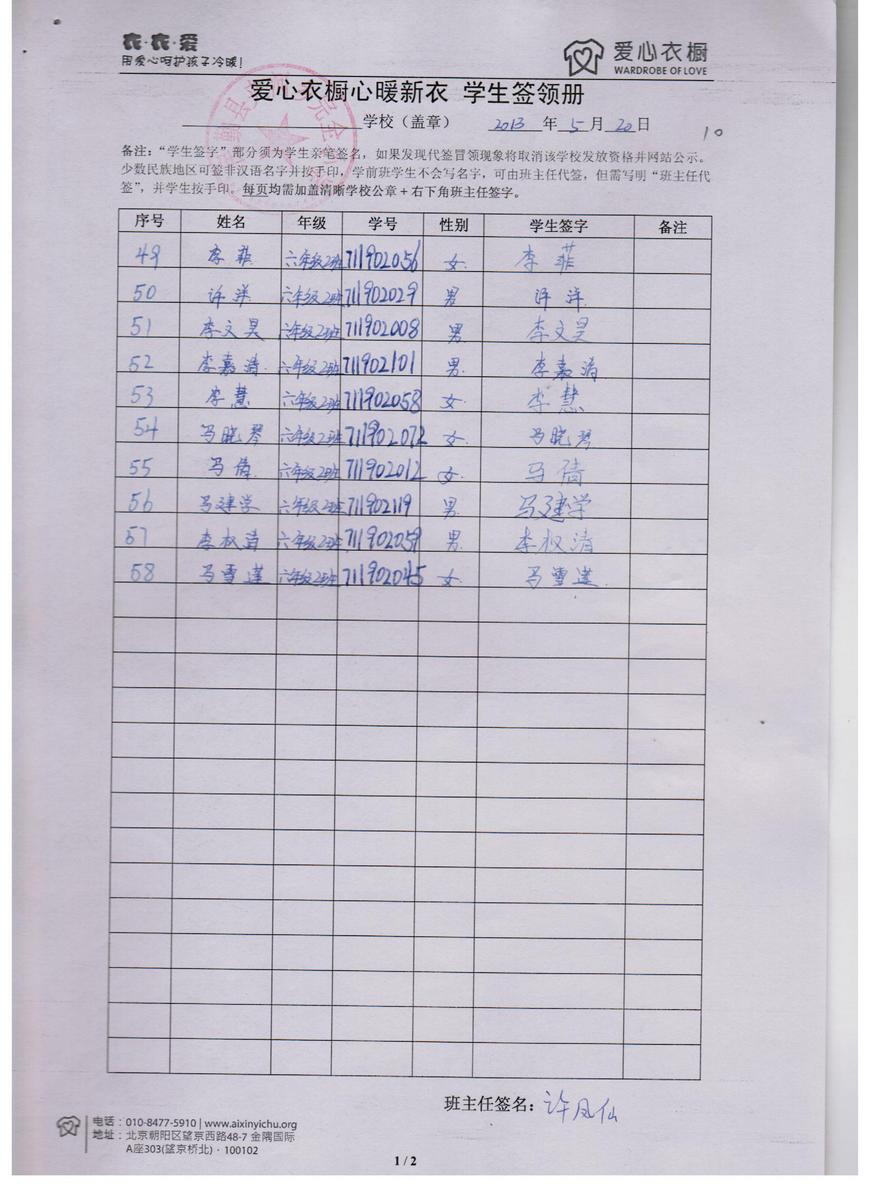 衣·衣·爱
用爱心呵护孩子冷暖!
爱心衣橱
WARDROBE OF LOVE
爱心衣橱心暖新衣 学生签领册
学校（盖章） 2013 年 5 月 20 日
10
备注：“学生签字”部分须为学生亲笔签名，如果发现代签冒领现象将取消该学校发放资格并网站公示。
少数民族地区可签非汉语名字并按手印，学前班学生不会写名字，可由班主任代签，但需写明“班主任代
签”，并学生按手印。每页均需加盖清晰学校公章+右下角班主任签字。
序号 姓名 年级 学号 性别 学生签字 备注
49 李菲 六年级2班 711902056 女 李菲
50 许洋 六年级2班 711902029 男 许洋
51 李文昊 六年级2班 711902008 男 李文昊
52 李嘉涛 六年级2班 711902101 男 李嘉涛
53 李慧 六年级2班 711902058 女 李慧
54 马晓琴 六年级2班 711902072 女 马晓琴
55 马倩 六年级2班 711902012 女 马倩
56 马建学 六年级2班 711902119 男 马建学
57 李权清 六年级2班 711902059 男 李权清
58 马雪莲 六年级2班 711902045 女 马雪莲
班主任签名：许凤仙
电话：010-8477-5910 | www.aixinyichu.org
地址：北京朝阳区望京西路48-7 金隅国际
A座303(望京桥北)·100102
1 / 2